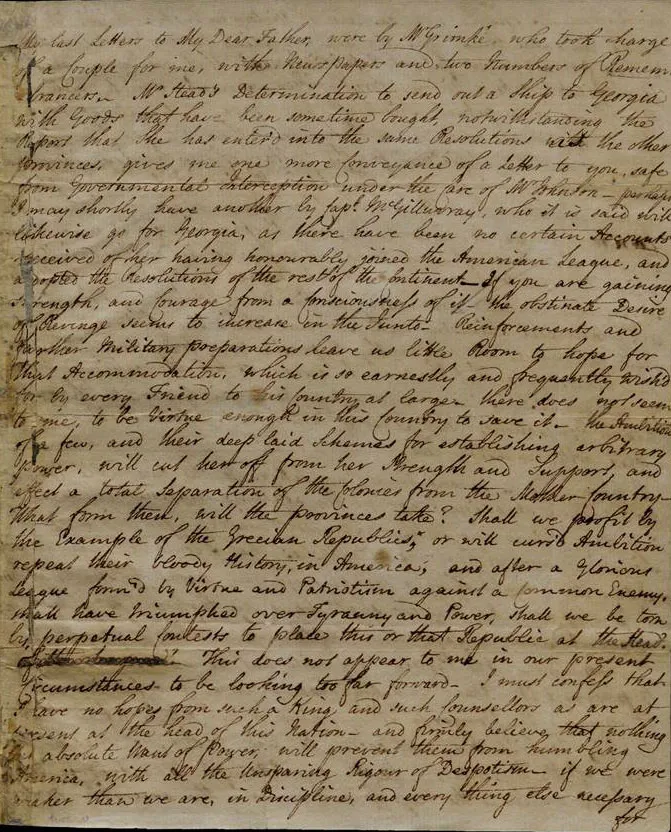 My last Letters to My Dear Father, were by Mr Grimkè who took charge
of a Couple for me, with Newspapers and two Numbers of Remem
brancers. Mr Stead's Determination to send out a Ship to Georgia
with Goods that have been sometime bought, notwithstanding the
Report that She has enter'd into the same Resolutions with the other
Provinces, gives me one more Conveyance of a Letter to you, safe
from Governmental Interception under the Care of Mr Johnson — perhaps
I may shortly have another by Capt. McGillivray, who it is said will
likewise go for Georgia, as there have been no certain Accounts
received of her having honourably joined the American League, and
adopted the Resolutions of the rest of the Continent — If you are gaining
Strength, and Courage from a Consciousness of it, the obstinate Desire
of Revenge seems to increase in the Junto — Reinforcements and
farther Military preparations leave us little Room to hope for
that Accommodation, which is so earnestly and frequently wish'd
for by every Friend to his Country at large — there does not seem
to me, to be Virtue enough in this Country to save it — the Ambition
of a few, and their deep laid Schemes for establishing arbitrary
Power, will cut her off from her Strength and Support, and
effect a total Separation of the Colonies from the Mother-Country —
What form then, will the provinces take? Shall we profit by
the Example of the Grecian Republics, or will curs'd Ambition
repeat their bloody History, in America; and after a Glorious
League form'd by Virtue and Patriotism against a Common Enemy,
shall have triumphed over Tyranny and Power, shall we be torn
by perpetual Contests to place this or that Republic at the Head.
This does not appear to me in our present
Circumstances to be looking too far forward — I must confess that
I have no hopes from such a King, and such Counsellors as are at
present at the head of this Nation — and firmly believe that nothing
but absolute Want of Power, will prevent them from humbling
America, with all the Unsparing Rigour of Despotism — if we were
weaker than we are, in Discipline, and every thing else necessary
for